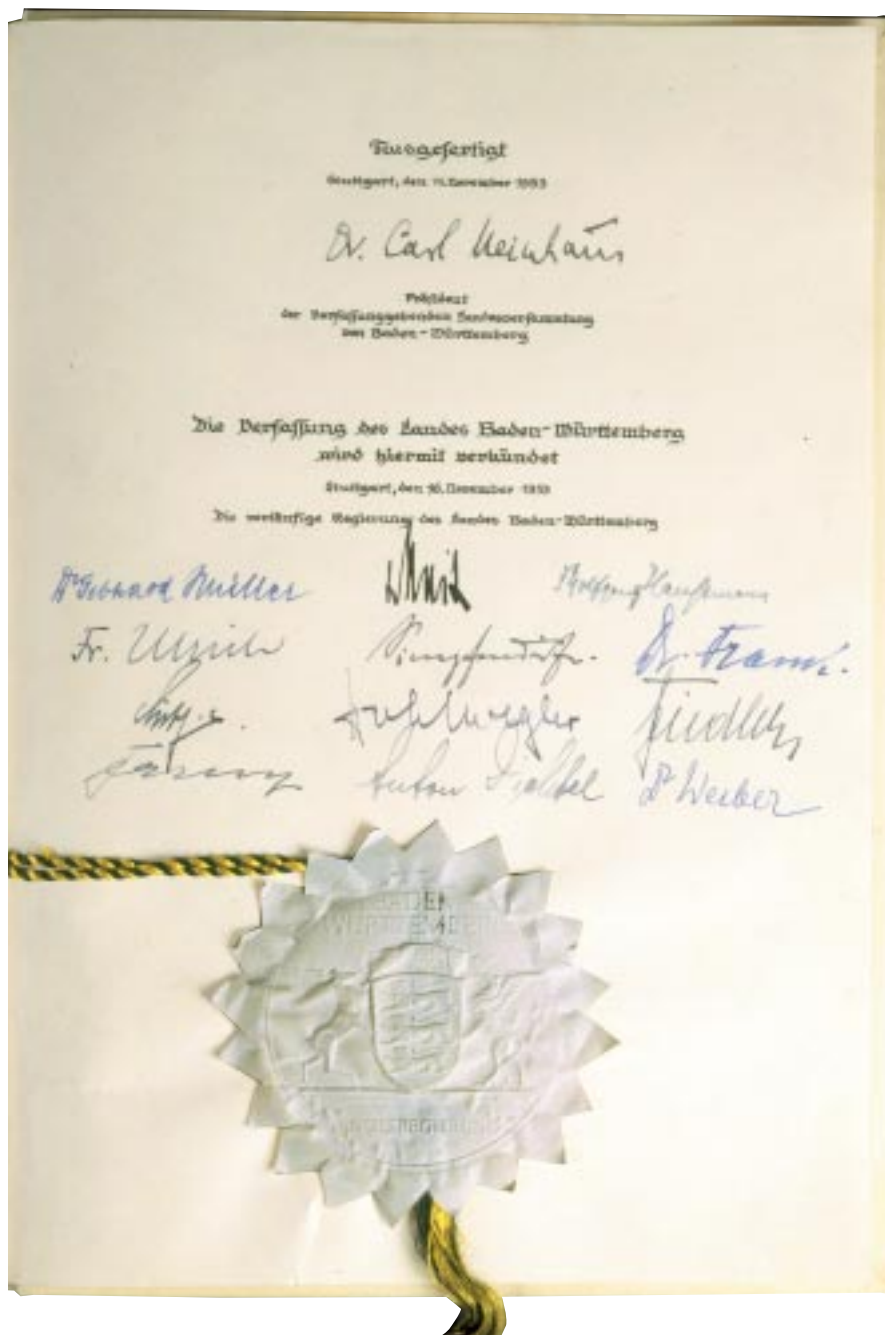 Ausgefertigt
Stuttgart, den 11. November 1953
Dr. Carl Neinhaus
Präsident
der Verfassunggebenden Landesversammlung
von Baden-Württemberg
Die Verfassung des Landes Baden-Württemberg
wird hiermit verkündet
Stuttgart, den November 1953
Die vorläufige Regierung des Landes Baden-Württemberg
Dr Gebhard Müller Wolfgang Haussmann
Fr. Ulrich Simpfendörfer. Dr. Frank.
Hohlwegler Fiedler
Anton Dichtel Dr Werber
BADEN
WÜRTTEMBERG